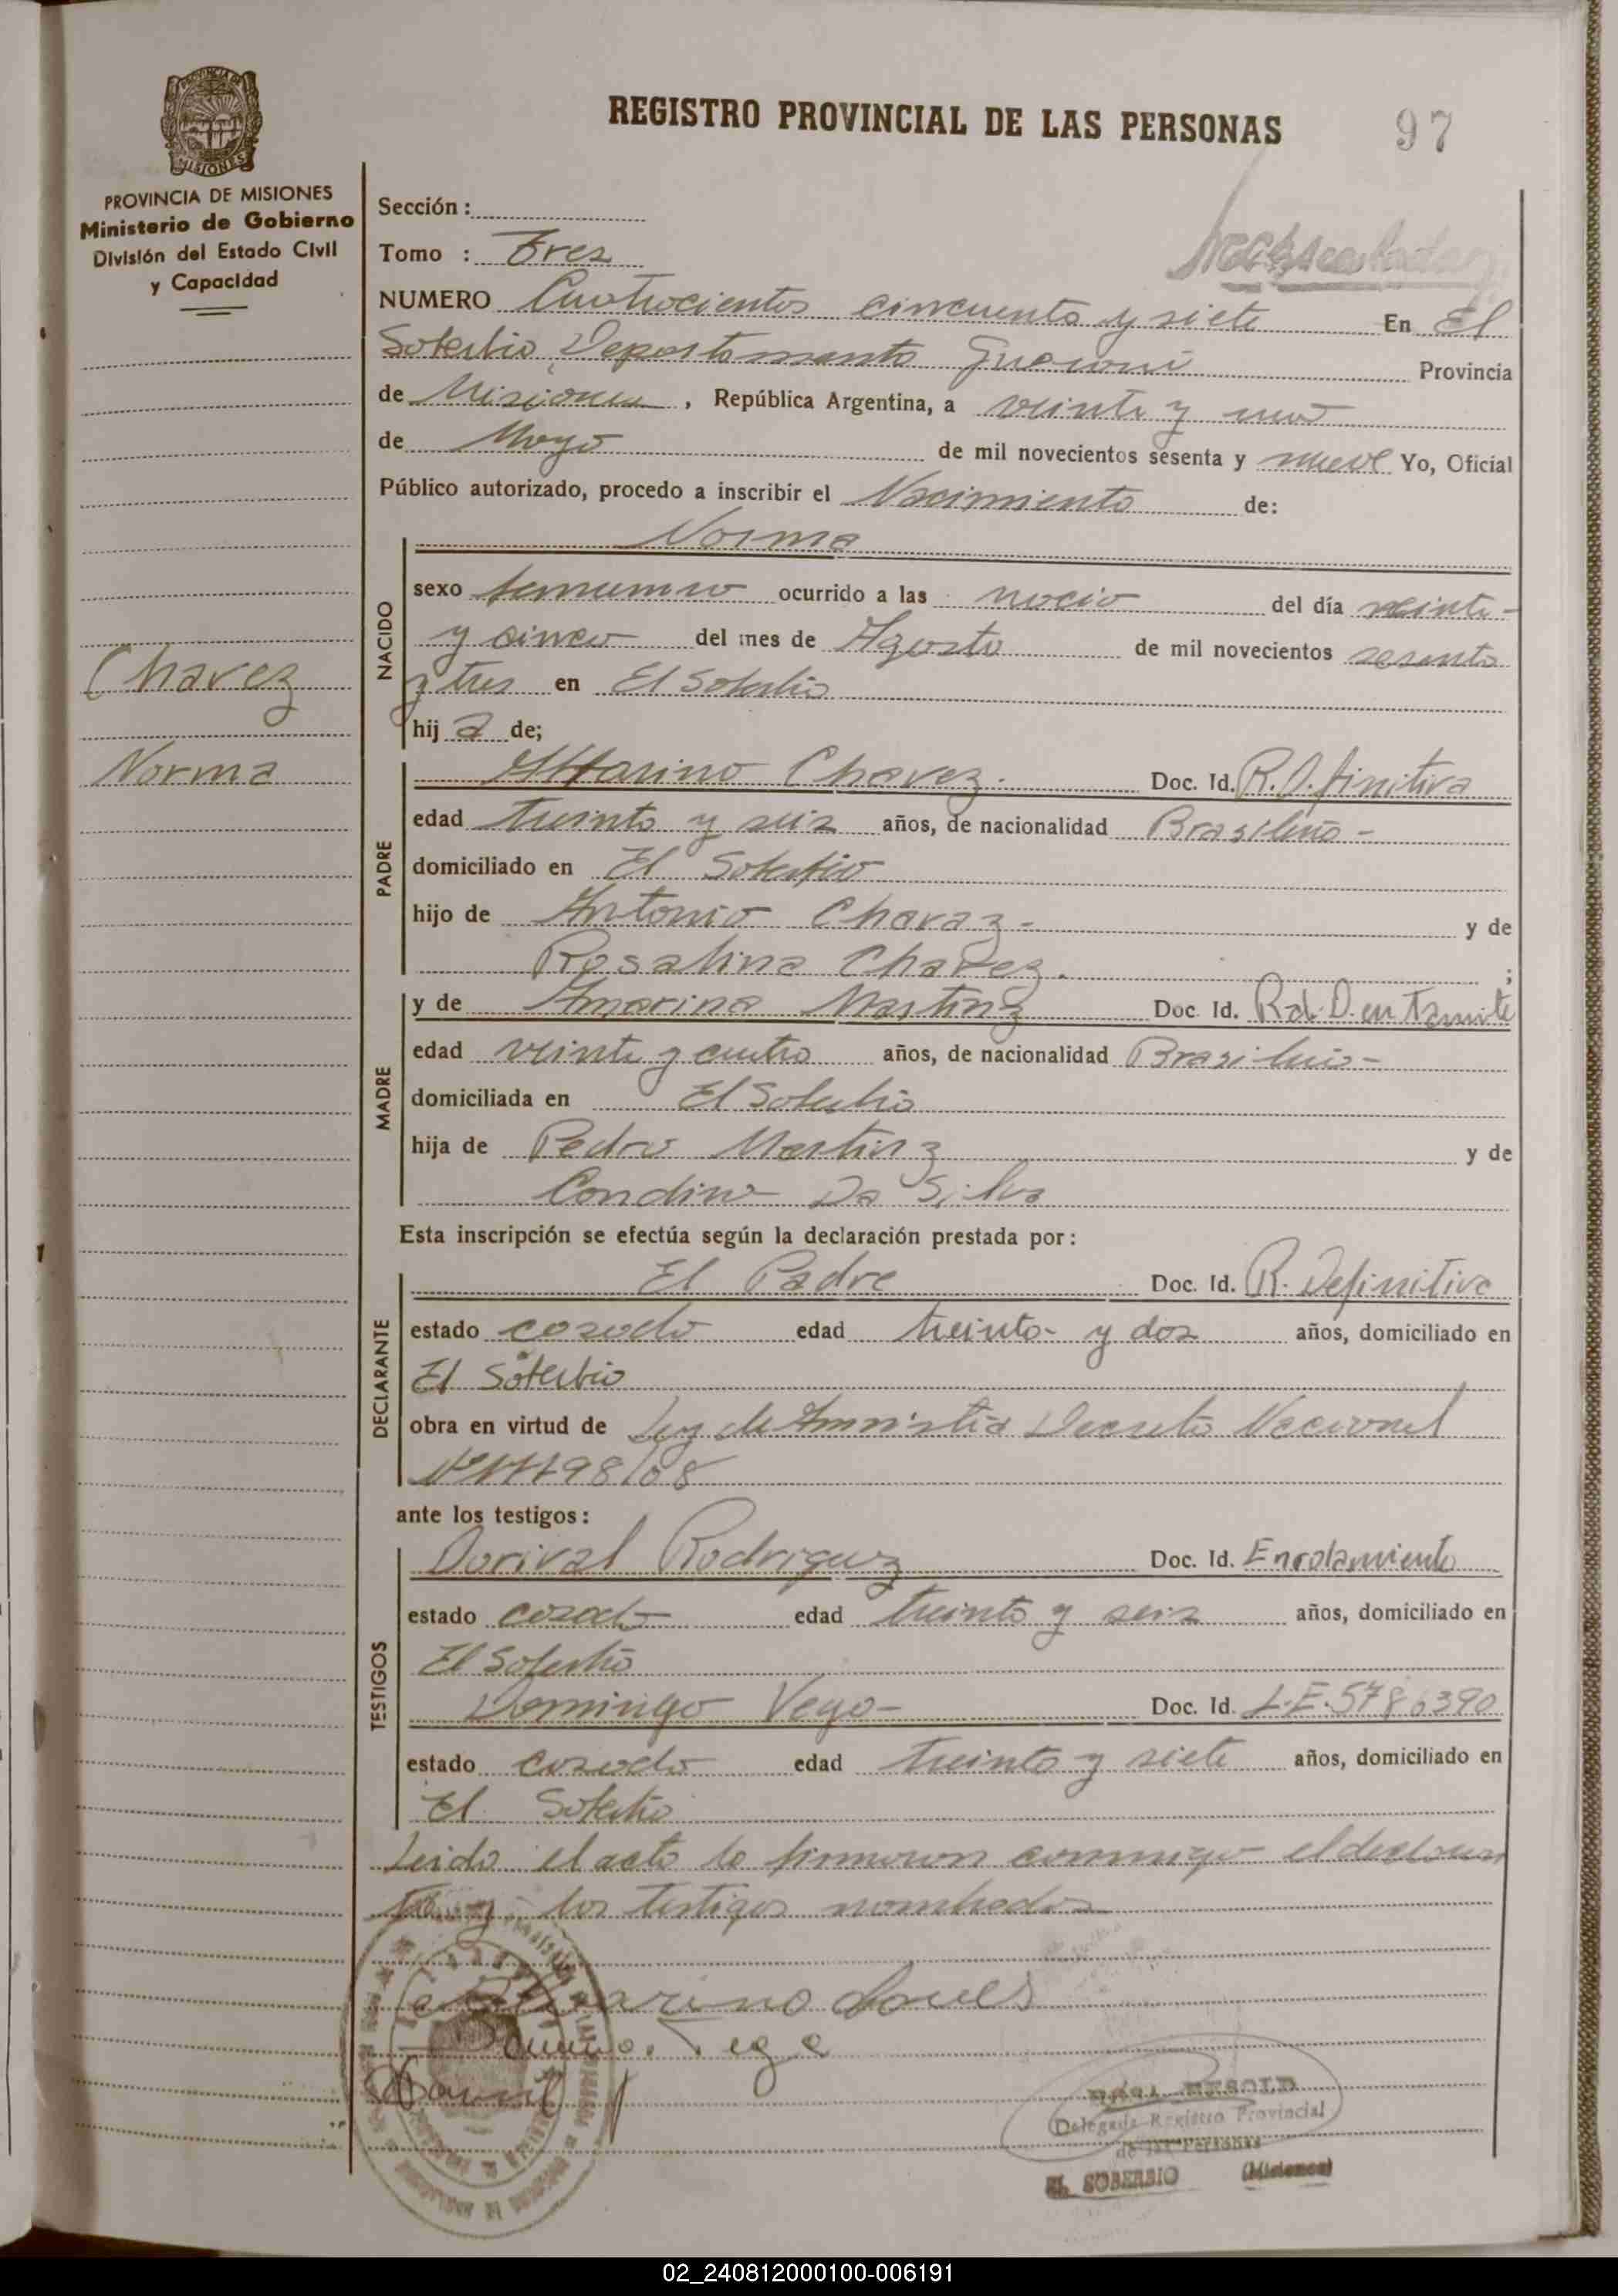 REGISTRO PROVINCIAL DE LAS PERSONAS
97
PROVINCIA DE MISIONES
PROVINCIA DE MISIONES
Ministerio de Gobierno
División del Estado Civil
y Capacidad
Sección :
Tomo : Tres
NUMERO Cuatrocientos cincuenta y siete En El
Soberbio, Departamento Guaraní Provincia
de Misiones, República Argentina, a veinte y uno
de Mayo de mil novecientos sesenta y nueve Yo, Oficial
Público autorizado, procedo a inscribir el Nacimiento de:
Norma
NACIDO
sexo femenino ocurrido a las del día veinte
y cinco del mes de Agosto de mil novecientos sesenta
y tres en El Soberbio
hij a de;
Chavez
Norma
PADRE
Chavez. Doc. Id. R. Difinitiva
edad treinta y seis años, de nacionalidad Brasileña -
domiciliado en El Soberbio
hijo de Antonio Chavaz - y de
Rosalina Chavez. ;
MADRE
y de Amarina Martinz Doc. Id. Rad. D. en Tramite
edad veinte y cuatro años, de nacionalidad Brasileña -
domiciliada en El Soberbio
hija de Pedro Martinz y de
Da Silva
Esta inscripción se efectúa según la declaración prestada por :
DECLARANTE
El Padre Doc. Id. R. Definitiva
estado casado edad treinta - y dos años, domiciliado en
El Soberbio
obra en virtud de Ley de Amnistia Decreto Nacional
ante los testigos :
TESTIGOS
Dorival Rodriguez Doc. Id. Enrolamiento
estado casado edad treinta y seis años, domiciliado en
El Soberbio
Domingo Vega - Doc. Id. L.E. 5786390
estado casado edad treinta y siete años, domiciliado en
El Soberbio
Leida el acta la firmaron conmigo el declaran
te y los testigos nombrados
Delegado Registro Provincial
de las Personas
EL SOBERBIO (Misiones)
02_240812000100-006191